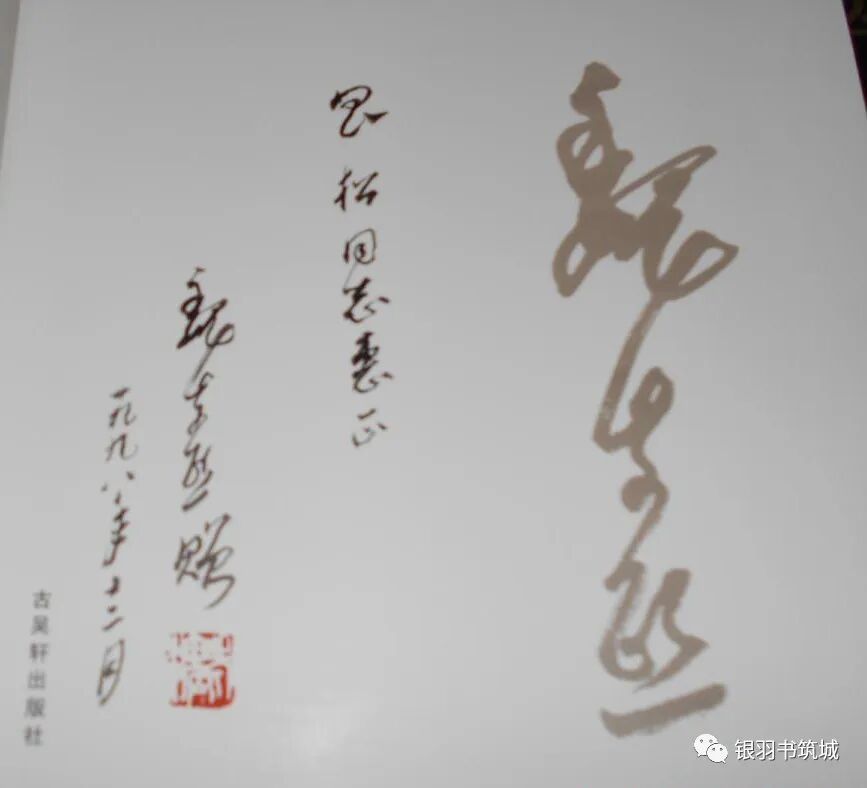 魏紫熙
同志惠正
魏紫熙赠
一九九八年十二月
古吴轩出版社
银羽书筑城